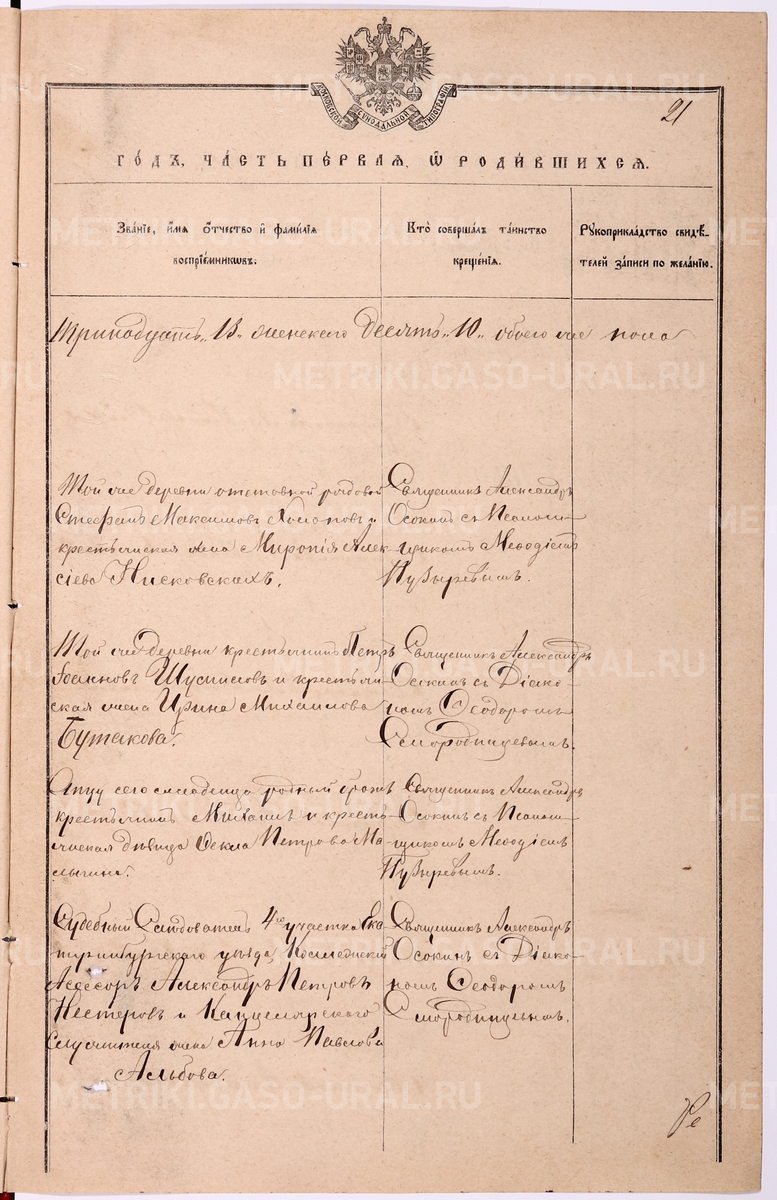 МОСКОВСКОЙ СѴНОДАЛЬНОЙ ТИПОГРАФІИ
21
ГОДЪ, ЧАСТЬ ПЕРВАЯ, Ѿ РОДИВШИХСЯ.
Званіе, имя отчество и фамилія
воспріемниковъ.
Кто совершалъ таинство
крещенія.
Рукоприкладство свидѣ-
телей записи по желанію.
Тринадцать „13„ женскаго десять „10„ обоего же пола
Той же деревни отставной рядовой
Стефанъ Максимовъ и
крестьянская жена Миропія Алек-
сіева Нисковскахъ.
Священникъ Александръ
Осокинъ съ Псалом-
щикомъ Меѳодіемъ
Пузыревымъ.
Той же деревни крестьянинъ Петръ
Іоанновъ и крестьян-
ская жена Ирина Михаилова
Бутакова.
Священникъ Александръ
Осокинъ съ Діако-
номъ Ѳеодоромъ
Смородинцевымъ.
Отцу сего младенца родный братъ
крестьянинъ Михаилъ и кресть-
янская дѣвица Ѳекла Петрова Ма-
лыгина.
Священникъ Александръ
Осокинъ съ Псалом-
щикомъ Меѳодіемъ
Пузыревымъ.
Судебный Слѣдователь 4го участка Ека-
теринбургскаго уѣзда, Коллежскій
Асессоръ Александръ Петровъ
Нестеровъ и Канцелярскаго
Служителя жена Анна Павлова
Альбова.
Священникъ Александръ
Осокинъ съ Діако-
номъ Ѳеодоромъ
Смородинцевымъ.
METRIKI.GASO-URAL.RU